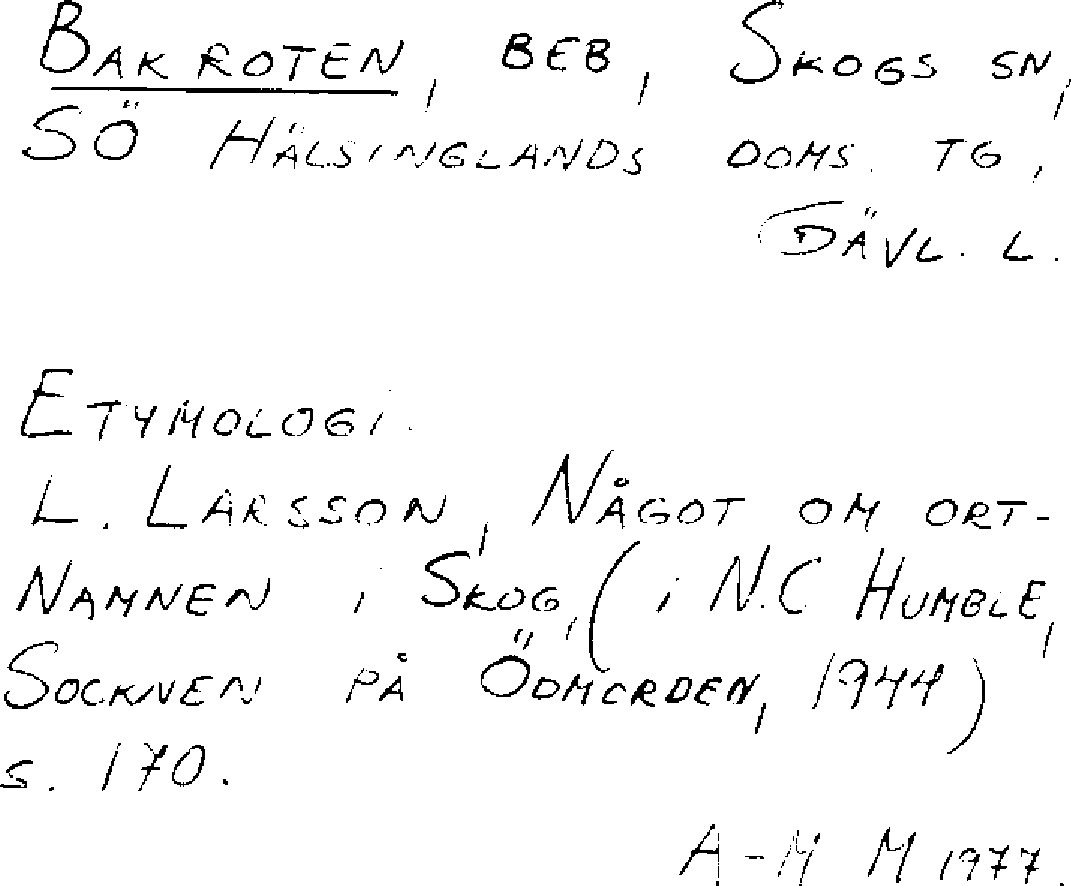 BAKROTEN, BEB, SKOGS SN,
SÖ HÄLSINGLANDS DOMS. TG,
GÄVL. L.
ETYMOLOGI.
L. LARSSON, NÅGOT OM ORT-
NAMNEN i SKOG, (i N.C HUMBLE,
SOCKNEN PÅ ÖDMORDEN, 1944)
s. 170.
A-M M 1977.